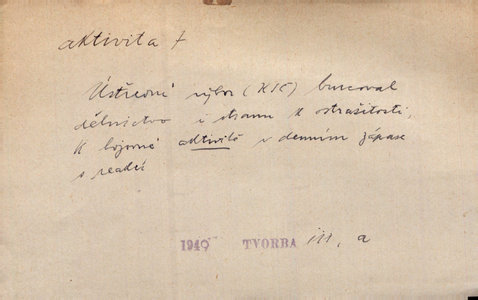 aktivita f
Ústřední výbor (KSČ) burcoval
dělnictvo i stranu k ostražitosti,
k bojovné aktivitě v denním zápase
s reakcí
1949 TVORBA 111, a